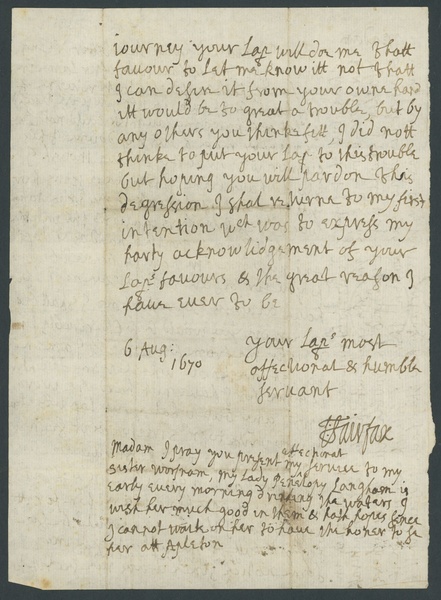 iourney your Lap will doe me thatt
favour to Let me know itt not thatt
I can desire it from your owne hand
itt would be to great a trouble, but by
any others you thinke fitt, I did nott
thinke to put your Lap to this trouble
but hoping you will pardon this
degression I shal returne to my first
intention wch was to express my
harty acknowlidgement of your
Laps favours & the great reason I
have ever to be
6 Aug:
1670
your Laps most
affectionat & humble
servant
Fairfax
Madam I pray you present affectionat
my service to my
sister my Lady Langham is
early every morning drinking the waters I
wish her much good in them & hath hopes since
I cannot work on her to have the honer to se
her att Apleton